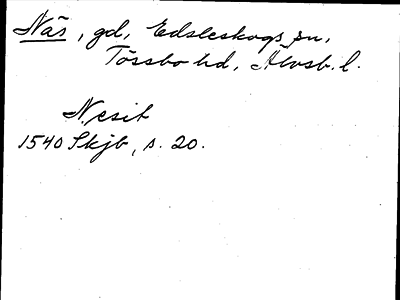 Näs, gd, Edsleskogs sn,
Tössbo hd, Älvsb. l.
Nesit
1540 Skjb, s. 20.